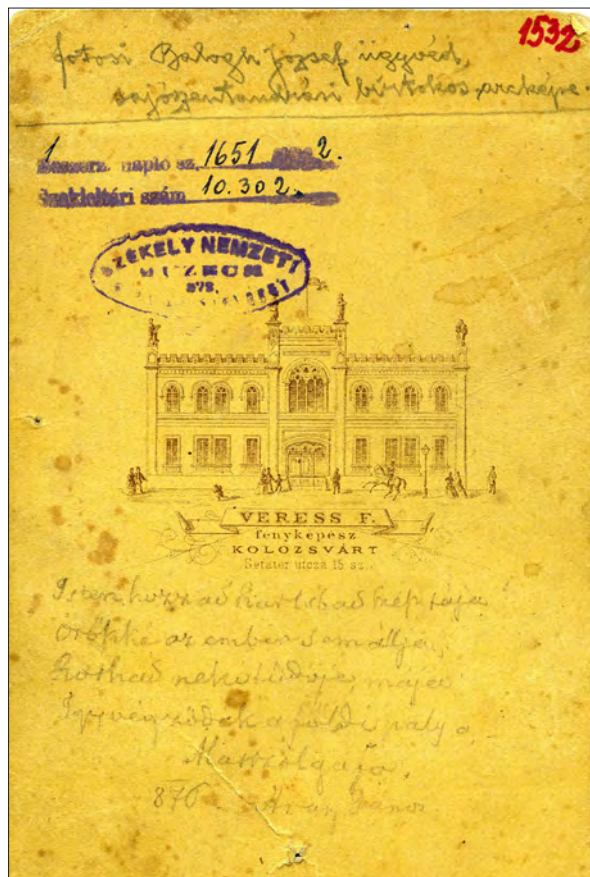 1532
fotosi Balogh József ügyvéd,
sajószentandrási birtokos arcképe.
1
Beszerz. napló sz. 1651 2.
Szakleltári szám 10.302.
SZÉKELY NEMZETI
MUZEUM
VERESS F.
fenyképesz
KOLOZSVÁRT
Setater utcza 15 sz.
Isten hozzád szép
örökké az ember sem állja,
Rothad neki tüdője, mája
Igy végződik a földi pálya,
876 Arany János